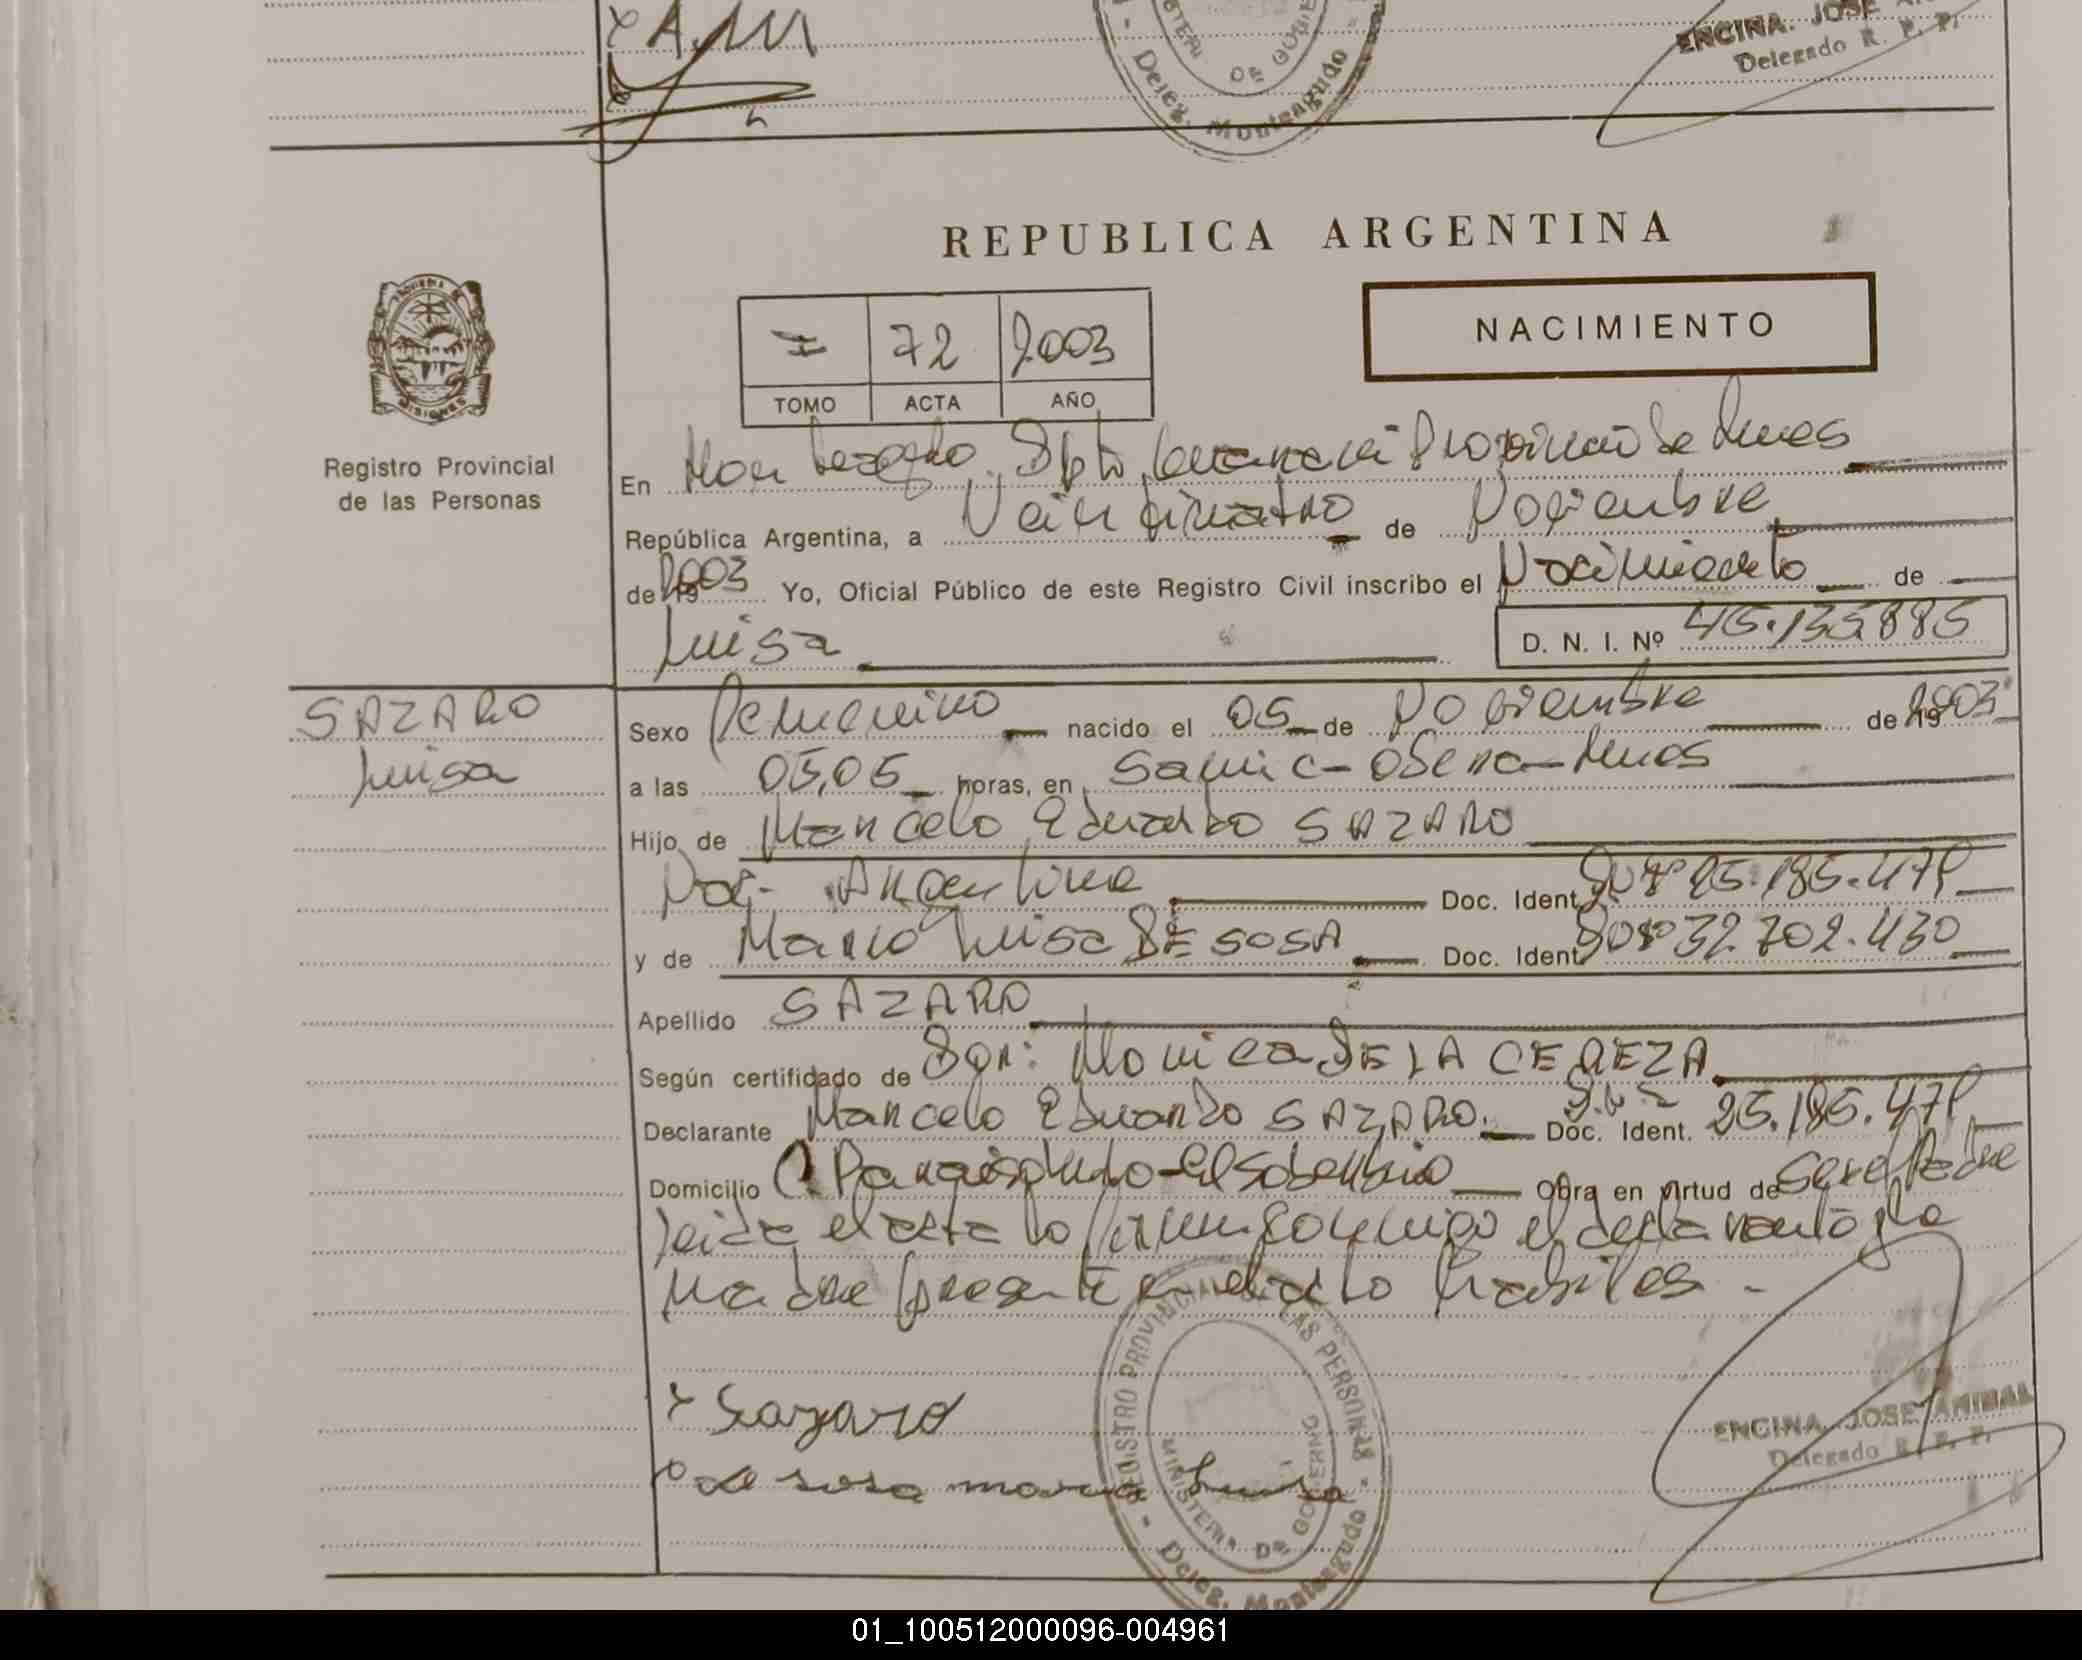 ENCINA. JOSE
Delegado R. P. P.
Deleg. Monteagudo
REPUBLICA ARGENTINA
NACIMIENTO
I 72 2003
TOMO ACTA AÑO
Registro Provincial
de las Personas
En Monteagudo. Dpto Guarani Provincia de Mnes
República Argentina, a Veinticuatro de Noviembre
de 2003 Yo, Oficial Público de este Registro Civil inscribo el Nacimiento de
Luisa D. N. I. Nº 45.135.885
SAZARO
Luisa
Sexo Femenino nacido el 05 de Noviembre de 2003
a las 05,05 horas, en Samic-Obera-Mnes
Hijo de Marcelo Eduardo SAZARO
Nac. Argentina Doc. Ident. 25.185.479
y de Maria Luisa DE SOSA Doc. Ident. 32.702.430
Apellido SAZARO
Según certificado de Dra: Monica DE LA CEREZA
Declarante Marcelo Eduardo SAZARO Doc. Ident. 25.185.479
Domicilio Paraiso-El Soberbio Obra en virtud de Ser el Padre
Leida el acta lo firman conmigo el declarante y la
Madre presente en el acto
Sazaro
de sosa maria Luisa
REGISTRO PROVINCIAL DE LAS PERSONAS
MINISTERIO DE GOBIERNO
Deleg. Monteagudo
ENCINA JOSE ANIBAL
Delegado R. P. P.
01_100512000096-004961